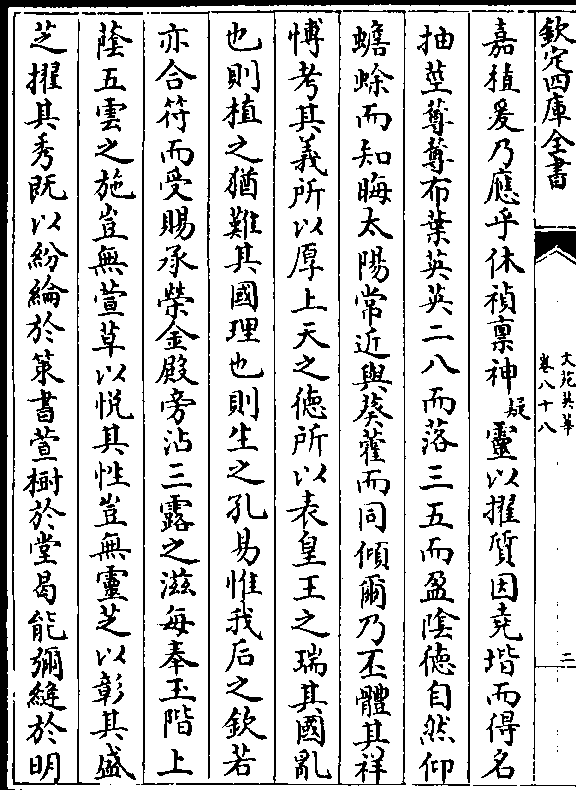 欽定四庫全書
文苑英華
卷八十八
二
嘉植爰乃應乎休禎稟神疑靈以擢質因堯堦而得名
抽莖蓴蓴布葉英英二八而落三五而盈陰德自然仰
蟾蜍而知晦太陽常近與葵藿而同傾爾乃丕體其祥
博考其義所以厚上天之德所以表皇王之瑞其國亂
也則植之猶難其國理也則生之孔易惟我后之欽若
亦合符而受賜承榮金殿旁沾三露之滋每奉玉階上
蔭五雲之施豈無萱草以悦其性豈無靈芝以彰其盛
芝擢其秀既以紛綸於策書萱樹於堂曷能彌縫於明